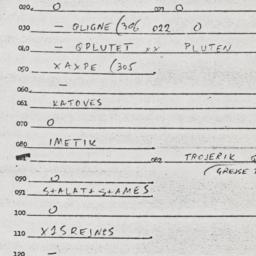 020. O 021 O
030 — QLIGNE (306 022 O
040 — QPLUTET xx PLUTEN
050 XAXPE (305
060 —
061 KATOVES
070 O
080 IMETIK
082 TROJERIK
090 O
091 S+ALAT+S+AMES
100 O
110 X1SREINES
120 —